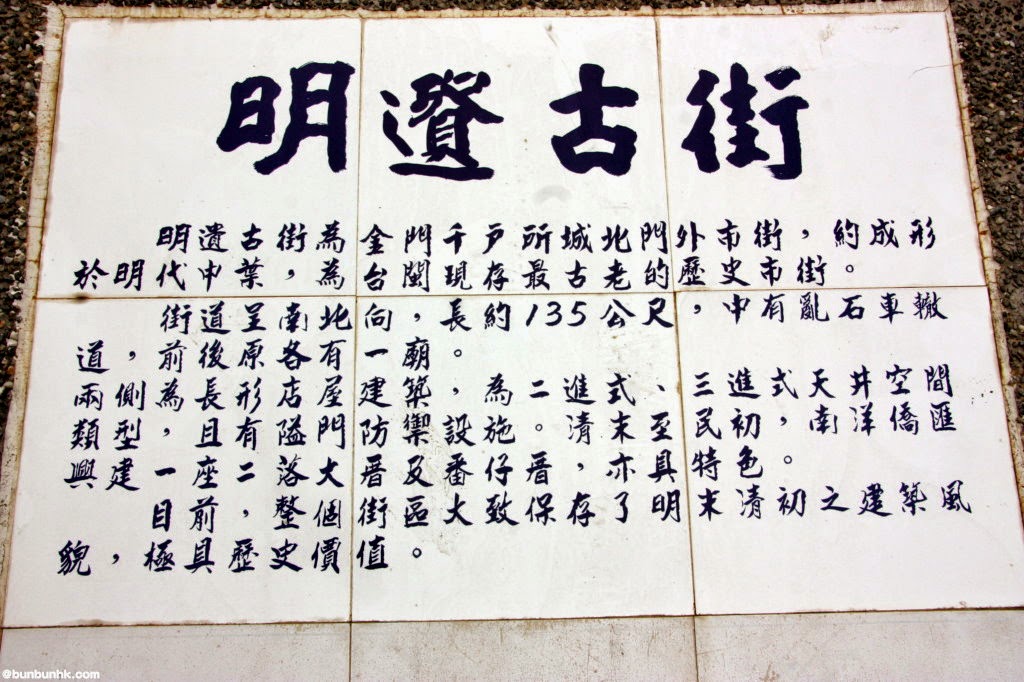 明遺古街
明遺古街為金門千戶所城北門外市街，約成形
於明代中葉，為台閩現存最古老的歷史市街。
街道呈南北向，長約135公尺，中有亂石車轍
道，前後原各有一廟。
兩側為長形店屋建築，為二進式、三進式天井空間
類型，且有隘門防禦設施。清末至民初，南洋僑匯
興建一座二落大厝及番仔厝，亦具特色。
目前，整個街區大致保存了明末清初之建築風
貌，極具歷史價值。
@bunbunhk.com